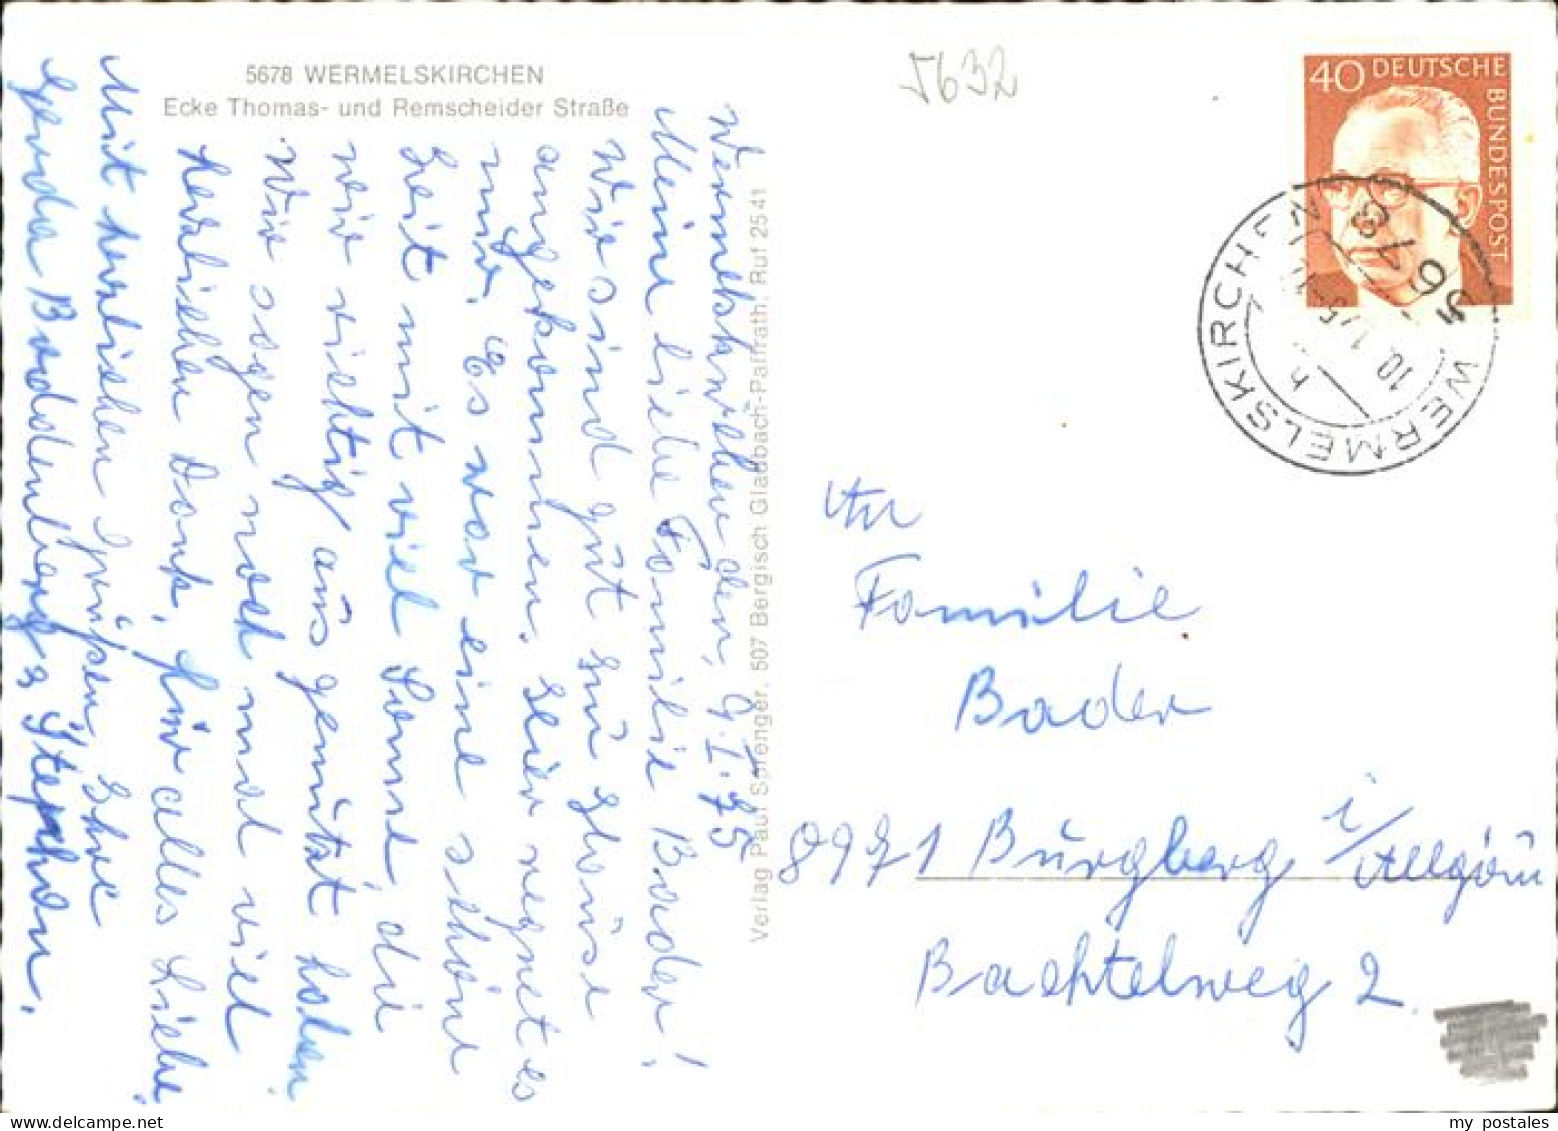 5678 WERMELSKIRCHEN
Ecke Thomas- und Remscheider Straße
5632
40 DEUTSCHE
BUNDESPOST
5678 WERMELSKIRCHEN
10.1.75
Wermelskirchen den, 9.I.75
Meine liebe Familie Bader!
Wir sind gut zu Hause
angekommen. Hier regnet es
nur. Es war eine schöne
Zeit mit viel Sonne, die
wir richtig aus genützt haben
Wir sagen noch mal viel
herzlichen Dank, für alles Liebe.
Mit herzlichen Grüßen, Ihre
Gerda Bordenberg & Stephan.
Verlag Paul Sprenger, 507 Bergisch Gladbach-Paffrath, Ruf 2541
An
Familie
Bader
8971 Burgberg i/Allgäu
Bachtelweg 2
my postales